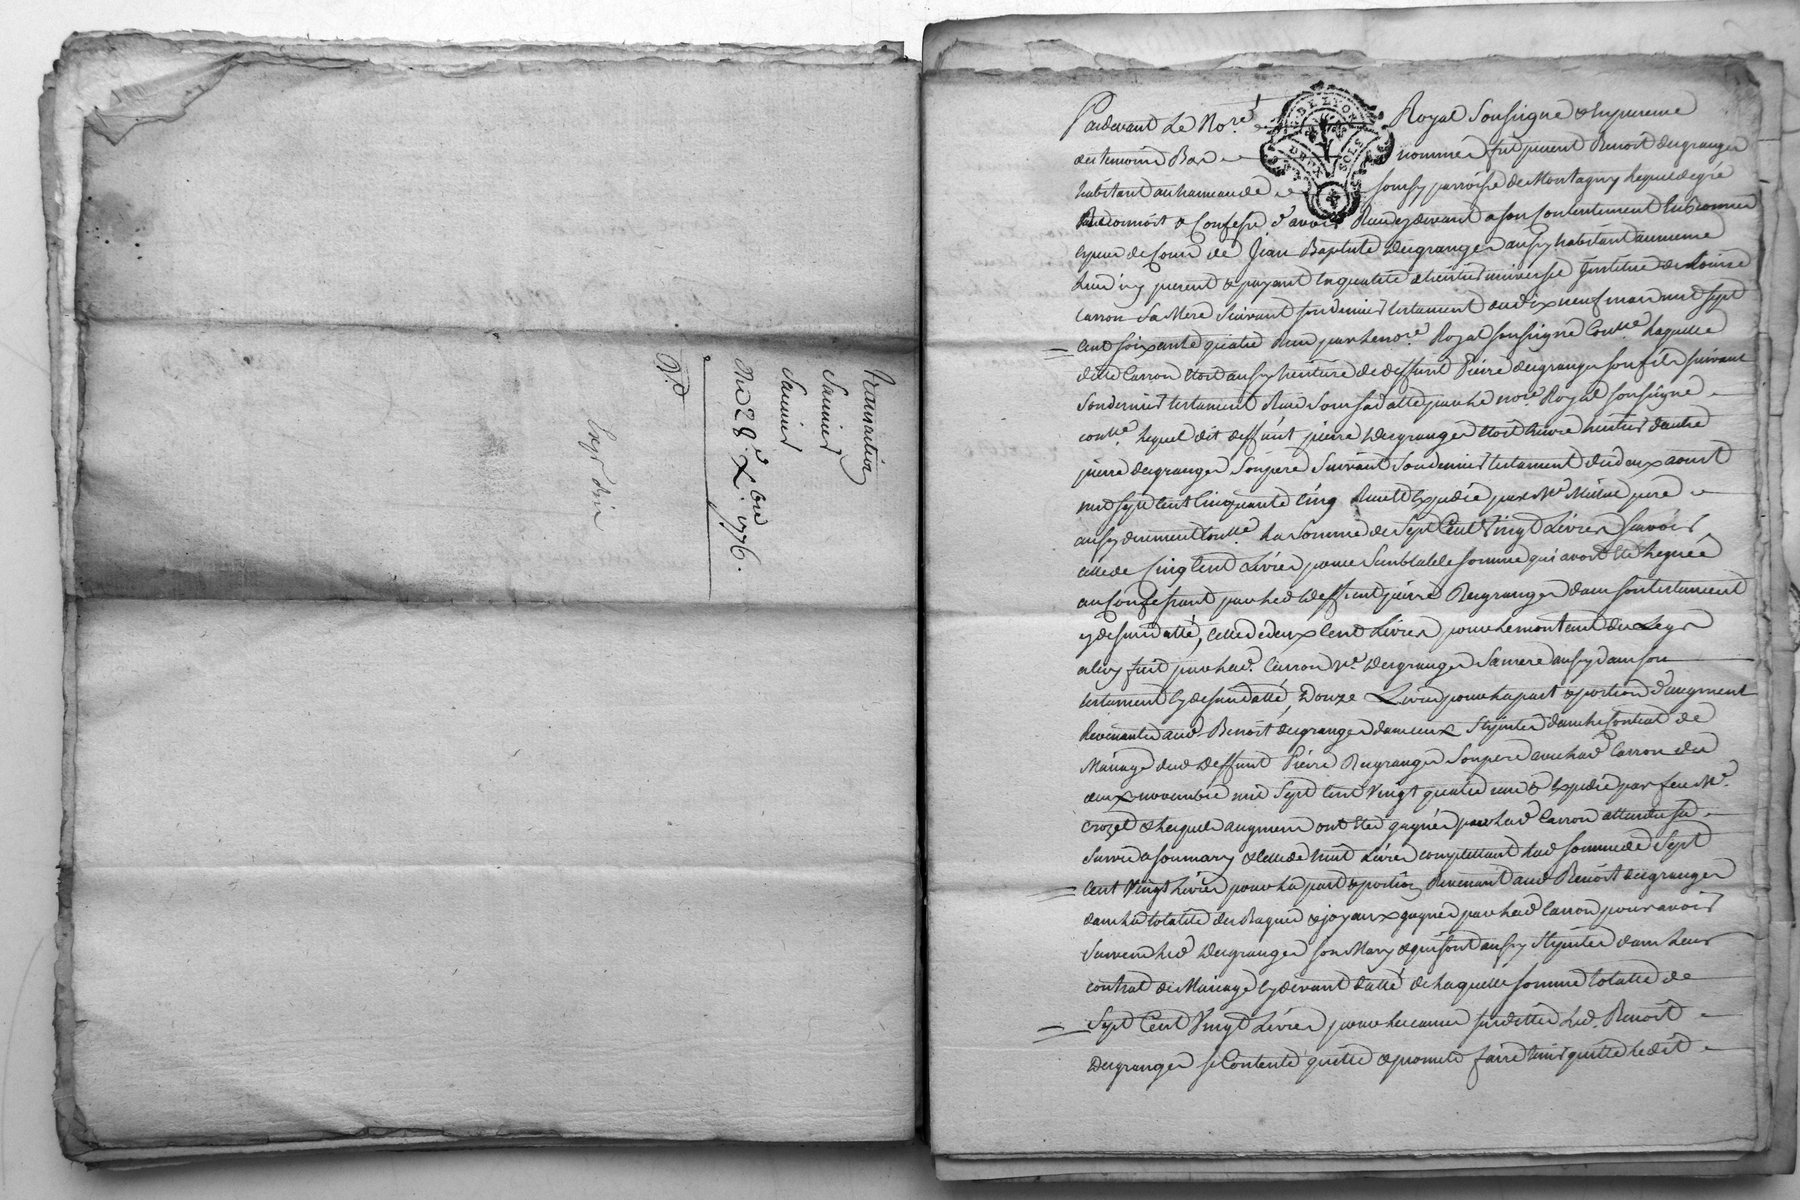 Transaction
Saunier
Saunier
Du 28.e 8.bre 1776.
Expédiée
Pardevant Le No.re Royal Soussigné & En presence
des temoins Bas nommés fut present Benoit desgranges
habitant au hameau de parroisse de Montagny Lequel de gré
Reconnoit & Confesse d'avoir Reçu cydevant a son Contentement
de Jean Baptiste desgranges aussy habitant au meme
Lieu icy present & payant En qualité d'heritier universel Institué de Louise
Carron Sa Mere Suivant son dernier testament du dix neuf mars mil sept
Cent soixante quatre Reçu par Le no.re Royal soussigné Laquelle
ditte Carron étoit aussy heritiere de deffunt Pierre desgranges son fils suivant
Son dernier testament Reçu par Le no.re Royal soussigné
Lequel dit deffunt pierre desgranges étoit heritier d'autre
pierre desgranges Son pere Suivant Son dernier testament du deux aoust
mil sept Cent Cinquante Cinq Reçu & Expedié par M.e pere
aussy La Somme de Sept Cent Vingt Livres Savoir
celle de Cinq Cent Livres pour Semblable somme qui avoit été Leguée
au Confessant par Led deffunt pierre Desgranges dans son testament
cydessus datté, celle de deux Cent Livres pour Le montant du Legs
a luy fait par Lad. Carron V.e desgranges Sa mere aussy dans son
testament Cydessus datté, Douze Livres pour La part & portion d'augment
Revenante aud Benoit desgranges dans ceux Stipulés dans Le Contrat de
Mariage dud deffunt Pierre Desgranges Son pere avec Lad Carron du
deux novembre mil Sept Cent Vingt quatre reçu & Expedié par feu M.e
Crozet & Lesquels augmens ont été gagnés par Lad Carron attendu sa
Survie a son mary & Celle de huit Livres complettant Lad somme de Sept
Cent Vingt Livres pour La part & portion Revenant aud Benoit desgranges
dans La totalité des Bagues & joyaux gagnés par Lad Carron pour avoir
Survecu Led Desgranges son Mary & qui sont aussy Stipulés dans Leur
contrat de Mariage Cydevant datté de Laquelle somme totalle de
Sept Cent Vingt Livres pour Les causes susdittes Led. Benoit
Desgranges se Contente quitte & promet faire tenir quitte Ledit